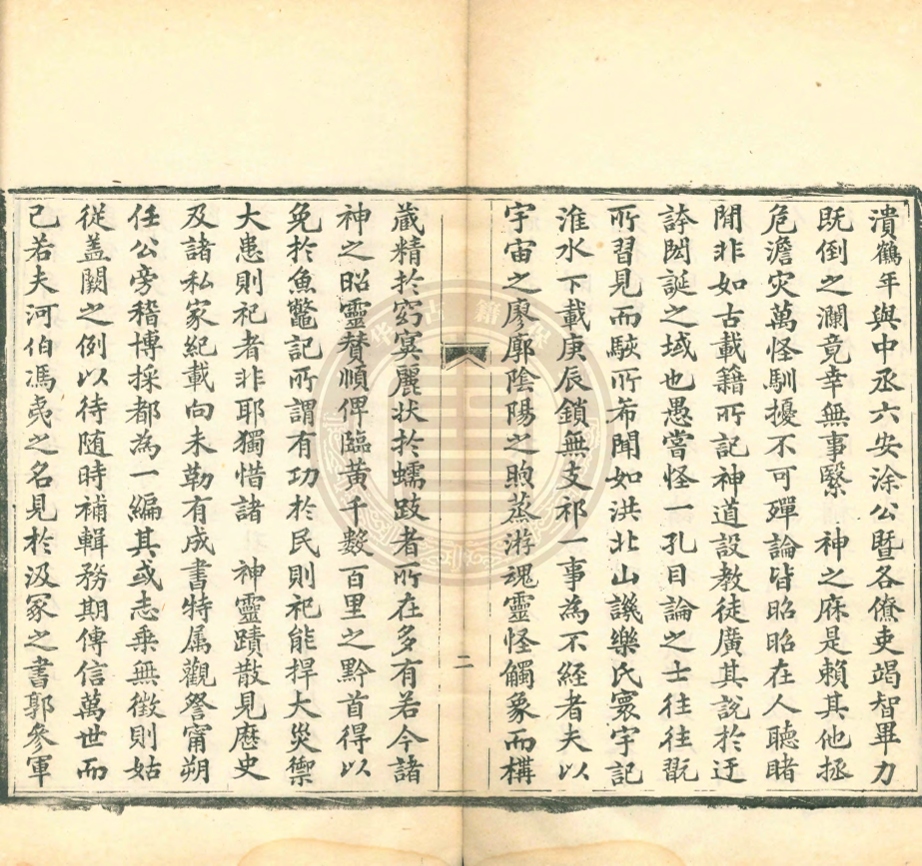 潰鶴年與中丞六安涂公暨各僚吏竭智畢力
既倒之瀾竟幸無事繄　神之庥是賴其他拯
危澹灾萬怪馴擾不可殫論皆昭昭在人聽睹
聞非如古載籍所記神道設教徒廣其說於迂
誇閎誕之域也愚嘗怪一孔目論之士往往翫
所習見而駭所希聞如洪北山譏樂氏寰宇記
淮水下載庚辰鎖無支祁一事為不經者夫以
宇宙之廖廓陰陽之煦蒸游魂靈怪觸象而構
二
藏精於窈冥麗状於蠕跂者所在多有若今諸
神之昭靈贊順俾臨黃千數百里之黔首得以
免於魚鼈記所謂有功於民則祀能捍大災禦
大患則祀者非耶獨惜諸　神靈蹟散見歷史
及諸私家紀載向未勒有成書特属觀詧甯朔
任公旁稽博採都為一編其或志乘無徵則姑
從盖闕之例以待随時補輯務期傳信萬世而
已若夫河伯馮夷之名見於汲冢之書郭參軍